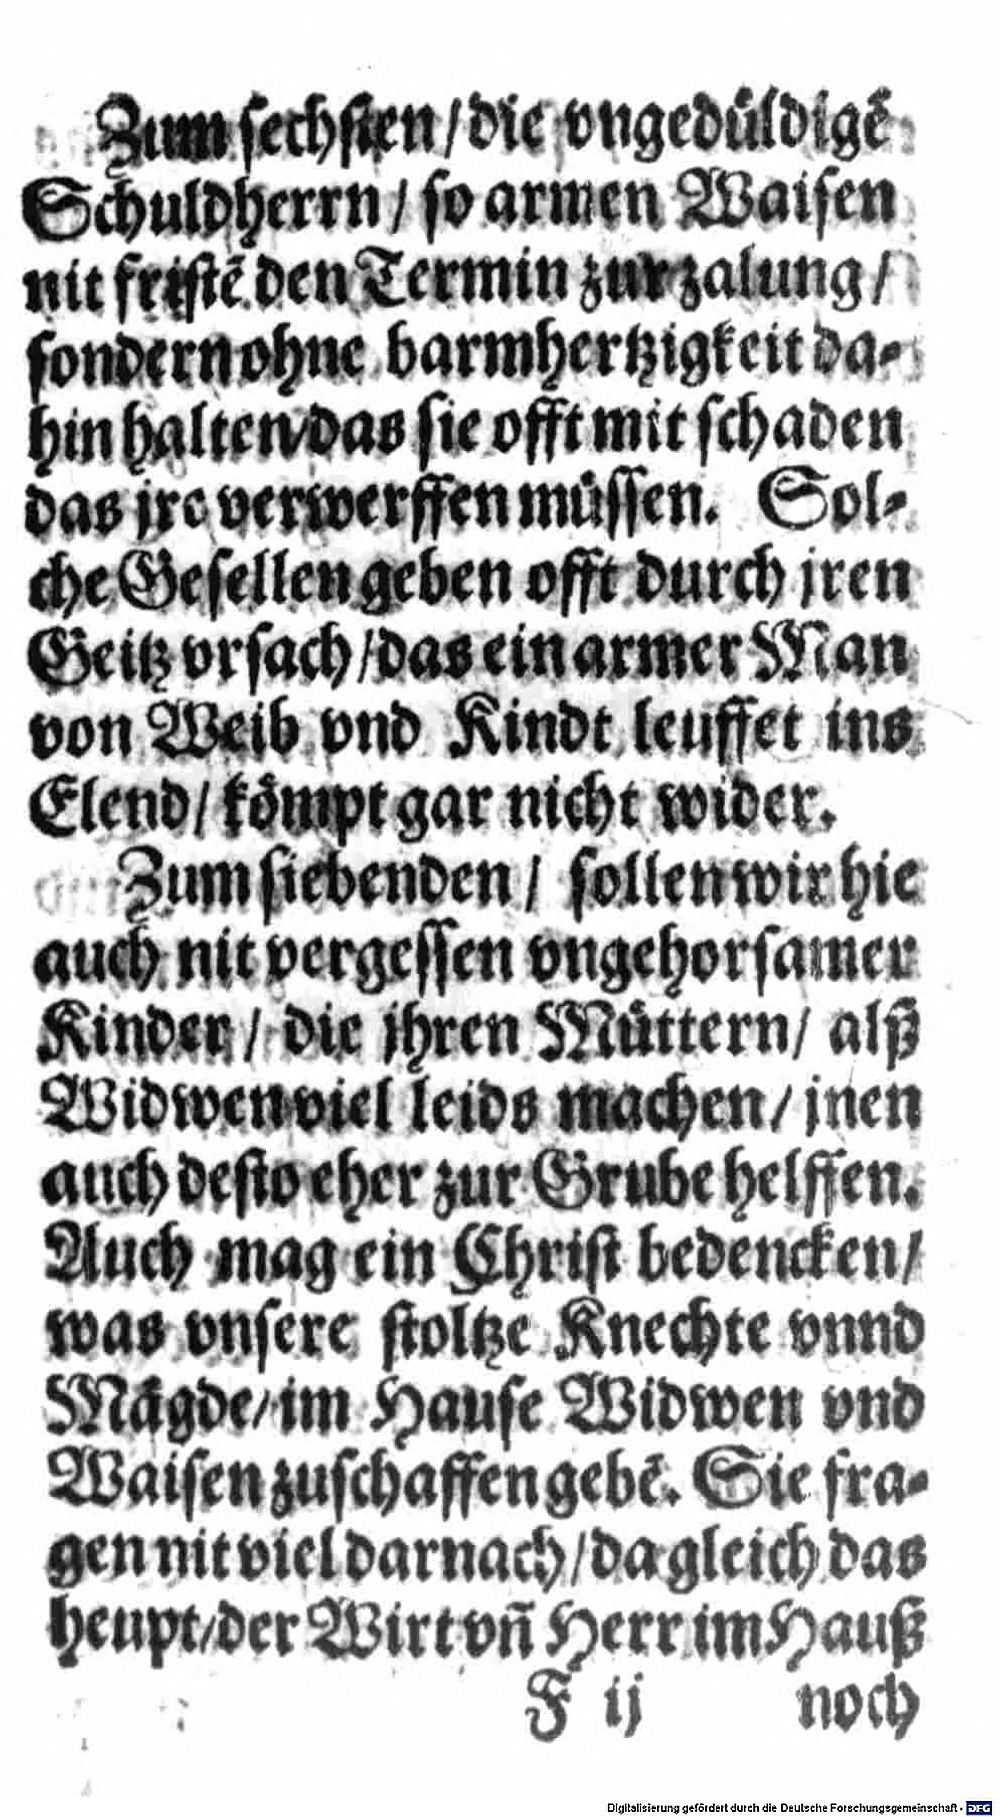 Zum sechsten / die vngedüldigē
Schuldherrn / so armen Waisen
nit fristē den Termin zur zalung /
sondern ohne barmhertzigkeit da-
hin halten / das sie offt mit schaden
das jre verwerffen müssen. Sol-
che Gesellen geben offt durch jren
Geitz vrsach / das ein armer Man
von Weib vnd Kindt leuffet ins
Elend / kömpt gar nicht wider.
Zum siebenden / sollen wir hie
auch nit vergessen vngehorsamer
Kinder / die jhren Müttern / alß
Widwen viel leids machen / jnen
auch desto eher zur Grube helffen.
Auch mag ein Christ bedencken /
was vnsere stoltze Knechte vnnd
Mägde / im Hause Widwen vnd
Waisen zuschaffen gebē. Sie fra-
gen nit viel darnach / da gleich das
heupt / der Wirt vñ Herr im Hauß
F ij noch
Digitalisierung gefördert durch die Deutsche Forschungsgemeinschaft - DFG